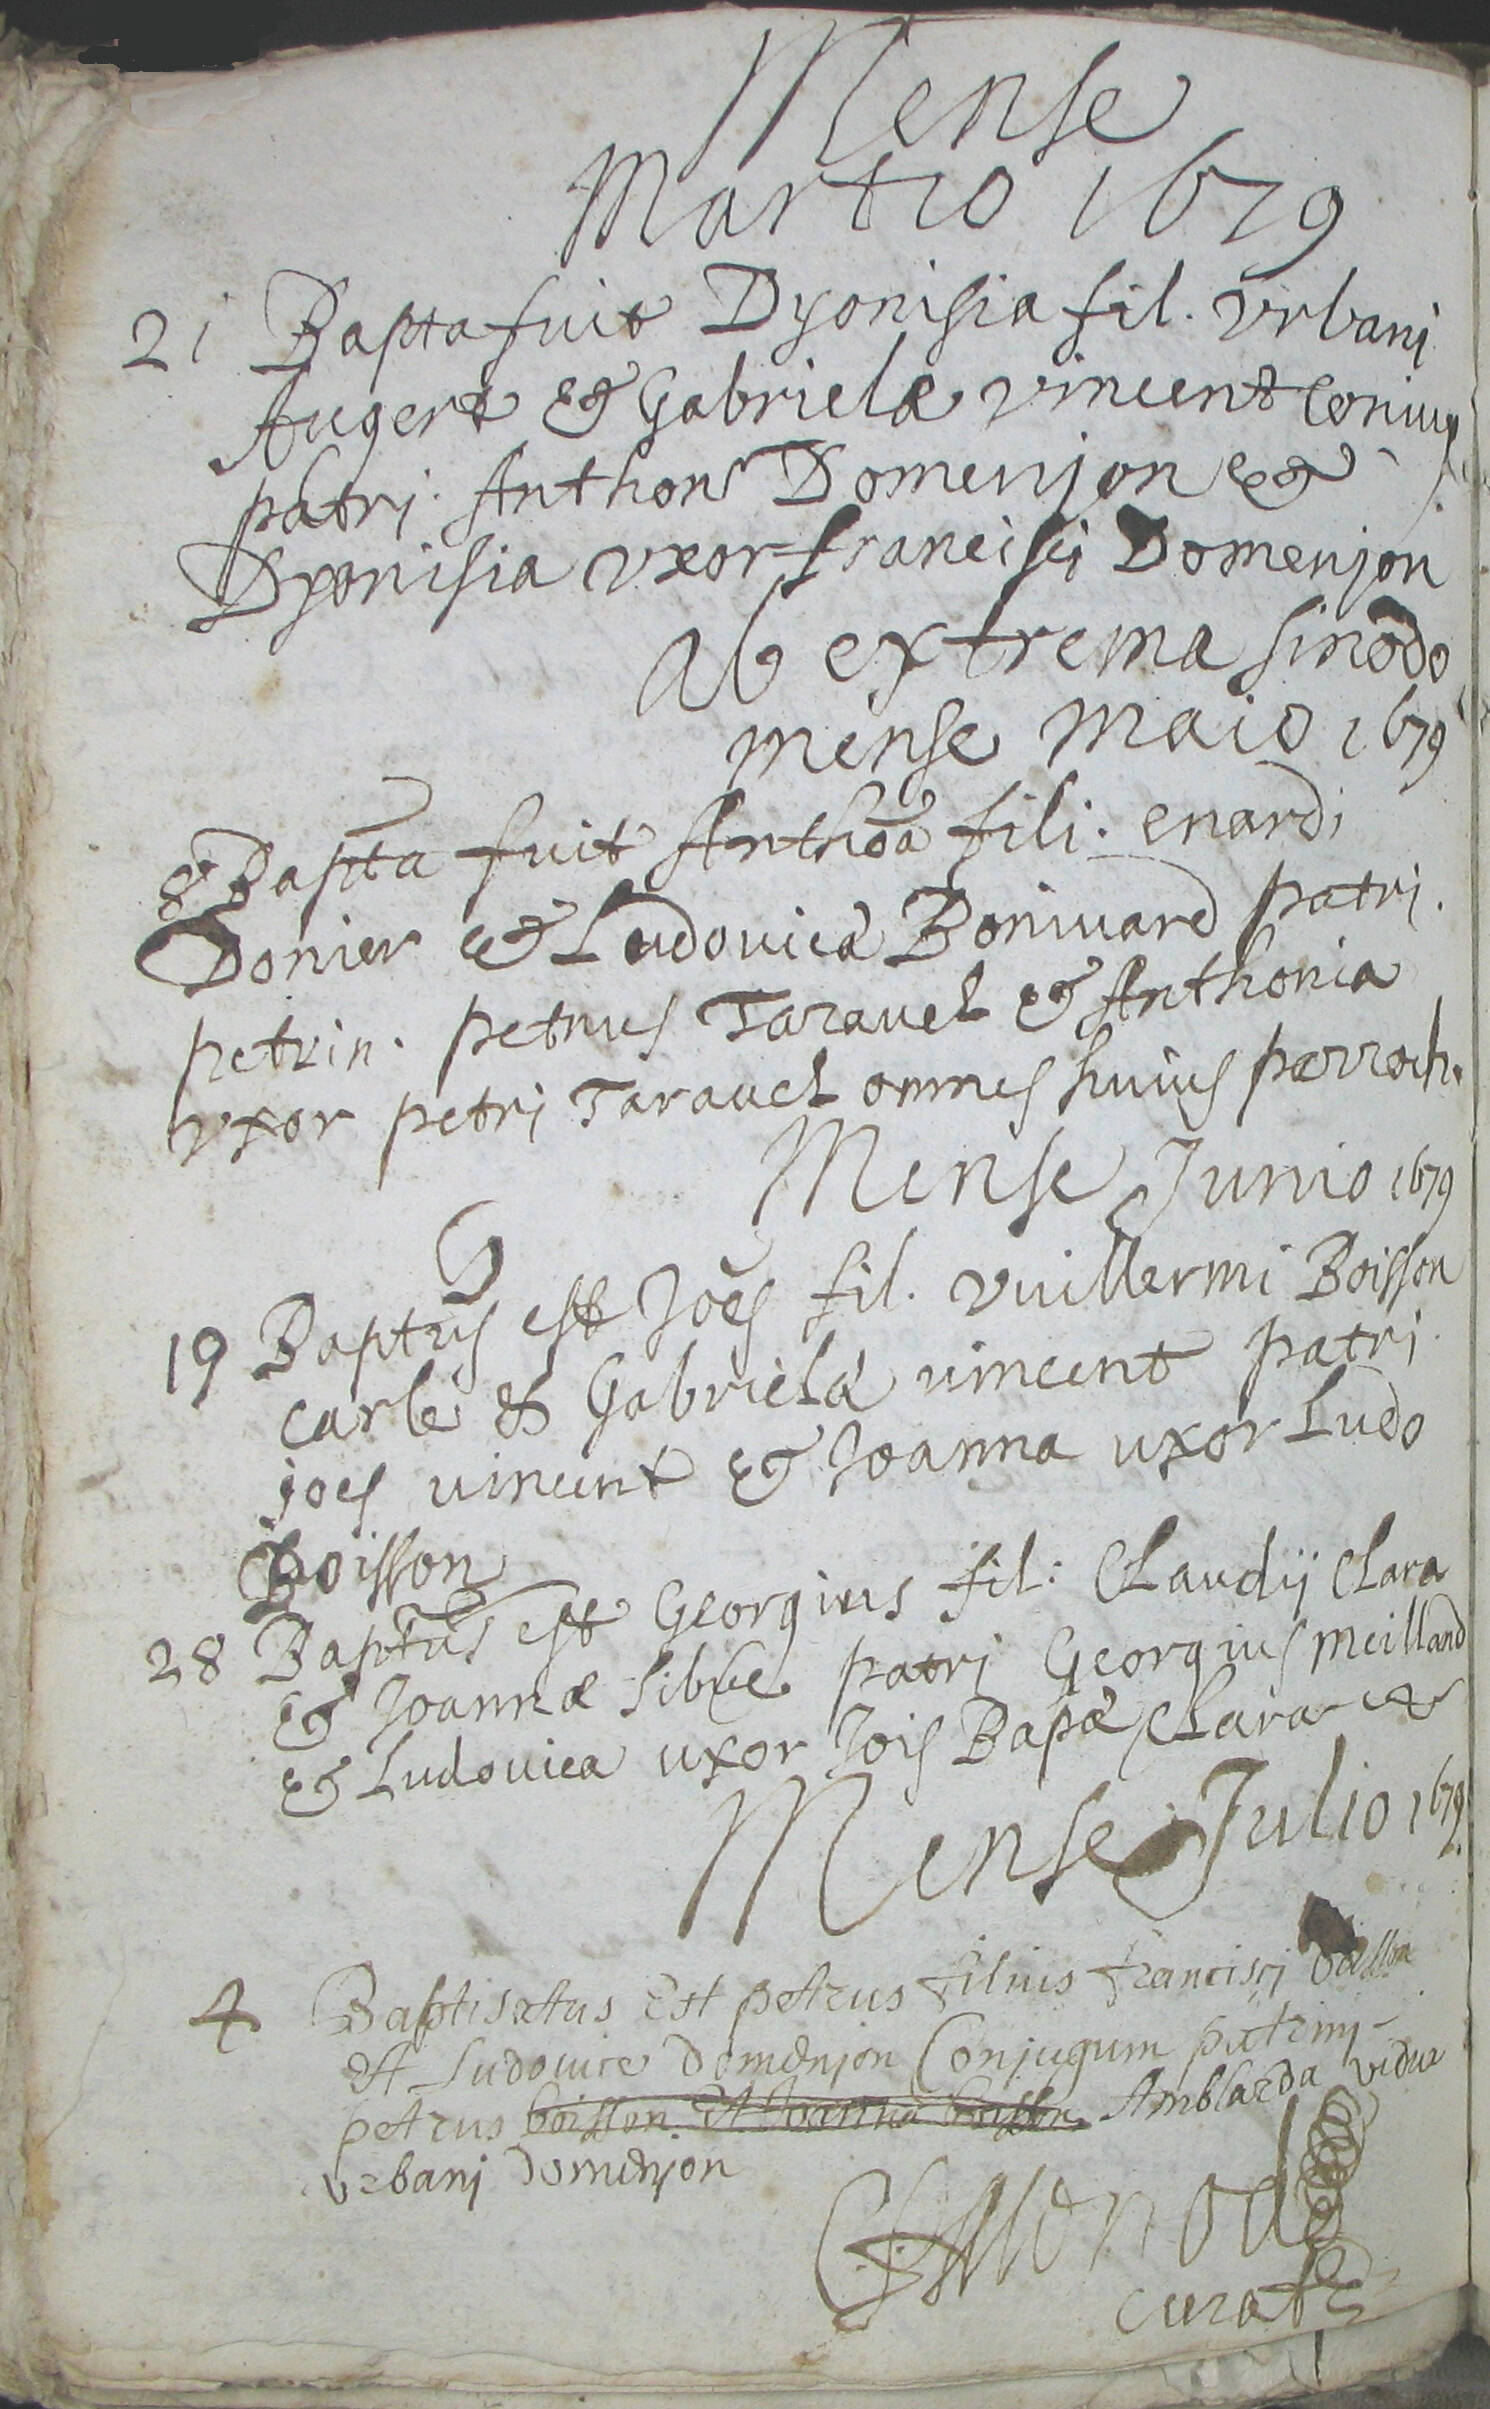 Mense
Martio 1679
21 Bapta fuit Dyonisia fil. Vrbanj
Augert & Gabrielæ vincent Coniug
patrj. Anthon Domenjon &
Dyonisia vxor francisci Domenjon
Ab extrema sinodo
mense maio 1679
8 Bapta fuit Anthōa fili. enardi
Donier & Ludovicæ Bonivard patri.
petrin. petrus Taravel & Anthonia
vxor petrj Taravel omnes huius parroch.
Mense Junio 1679
19 Baptus est Joēs fil. vuillermi Boisson
carle & Gabrielæ vincent patri
joes vincent & Joanna uxor Ludo
Boisson
28 Baptus est Georgius fil: Claudij Clara
& Joannæ Sibue patrj Georgius meilland
& Ludovica uxor Jois Bapæ Clara
Mense Julio 1679
4 Baptisatus Est petrus filius franciscj
et Ludovice Domenjon Conjugum patrinj
petrus boisson Et Joanna boisson Amblarda vidua
vrbanj Domenjon
curat